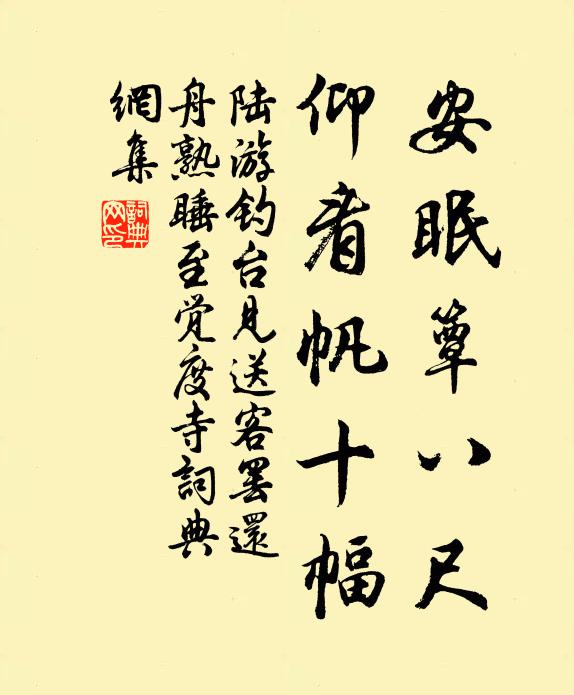 安眠簟八尺
仰看帆十幅
陆游钓台见送客罢还
舟熟睡至觉度寺詞典
網集
詞典網印